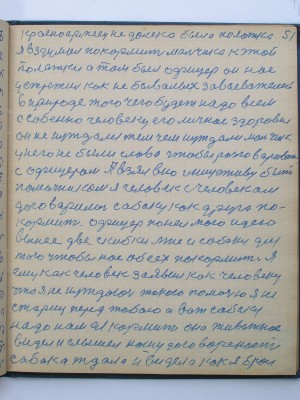 красноармеец не далеко была полотка 51
я вздумал покормить мальчика к этой
полятки а там был офицер он нас
встретил как не бывалых завоевателей
в природе того чего будет надо всем
особенно человеку его личное здоровья
он не нуждался тем чем нуждался мальчик
у него не было слова чтобы разговаривать
с офицером я взял в инициативу быть
я человек с человеком
договорились собаку как друга по-
кормить. офицер понел мою идею
вынес две мне и собаки для
того чтобы нас обеех покормить. Я
ему как человек заявил как человеку
что я не нуждаюсь такого помочью я не
перед тобою а вот собаку
надо нам кормить оно животное
видел и слышел нашу договореность
собака ждала и видела как я брал